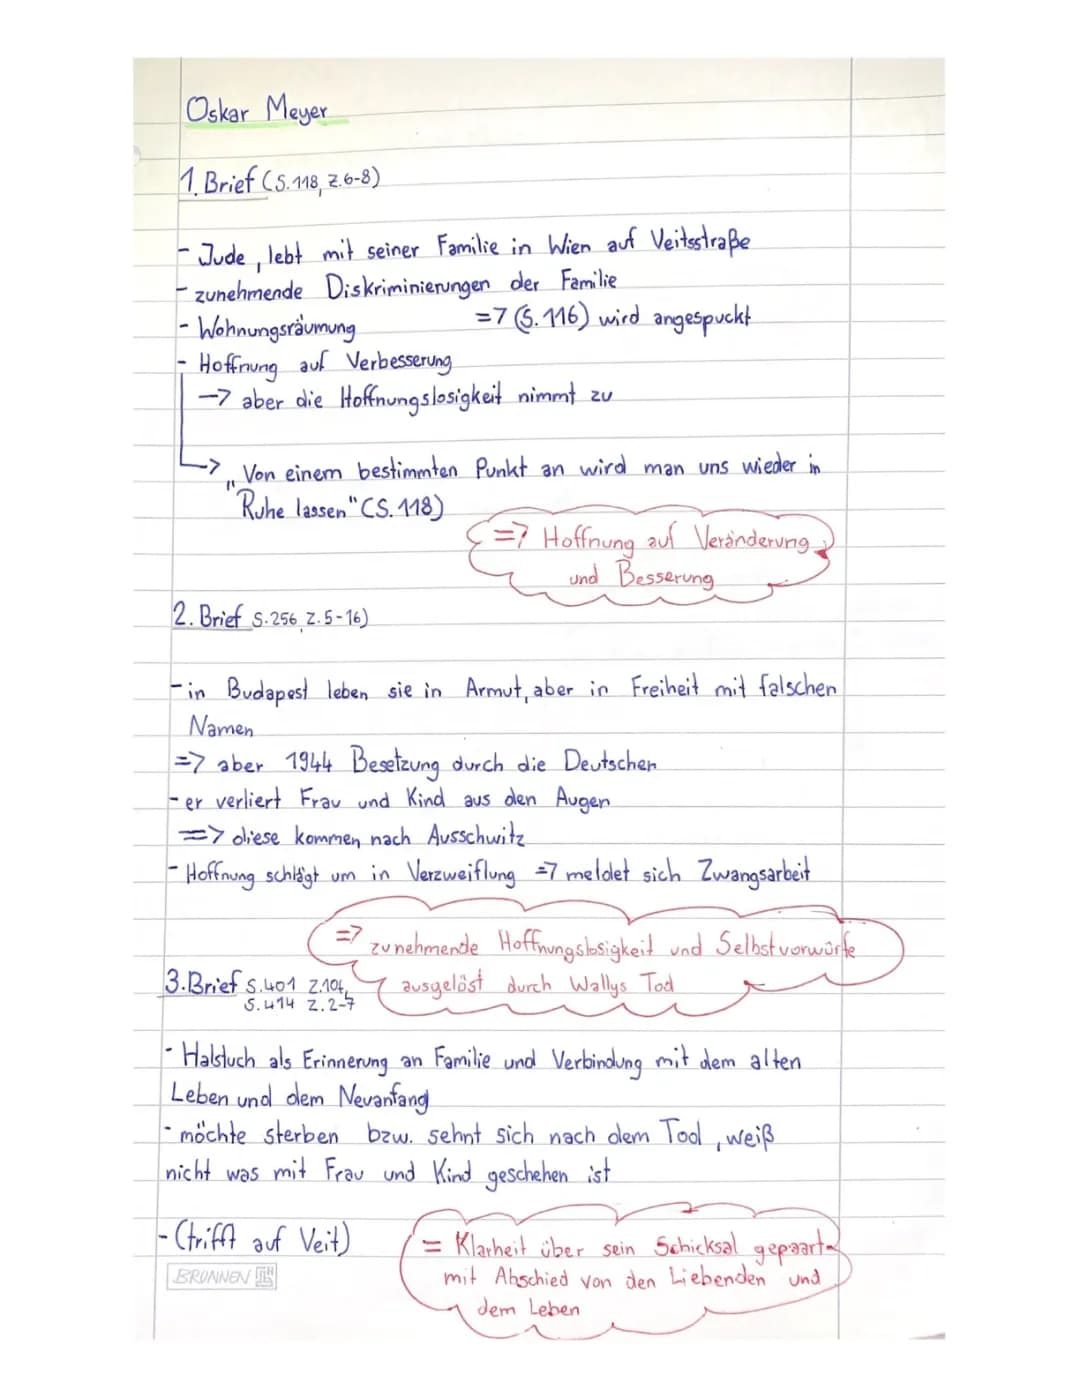 Oskar Meyer
1. Brief (S.118, Z.6-8)
- Jude, lebt mit seiner Familie in Wien auf Veitsstraße
- zunehmende Diskriminierungen der Familie
- Wohnungsräumung => (S.116) wird angespuckt
- Hoffnung auf Verbesserung
-> aber die Hoffnungslosigkeit nimmt zu
-> „Von einem bestimmten Punkt an wird man uns wieder in
Ruhe lassen" (S.118)
=> Hoffnung auf Veränderung
und Besserung
2. Brief S.256, Z.5-16)
- in Budapest leben sie in Armut, aber in Freiheit mit falschen
Namen
=> aber 1944 Besetzung durch die Deutschen
- er verliert Frau und Kind aus den Augen
=> diese kommen nach Ausschwitz
- Hoffnung schlägt um in Verzweiflung => meldet sich Zwangsarbeit
=> zunehmende Hoffnungslosigkeit und Selbstvorwürfe
ausgelöst durch Wallys Tod
3. Brief S.401 Z.10f,
S.414 Z.2-7
- Halstuch als Erinnerung an Familie und Verbindung mit dem alten
Leben und dem Neuanfang
- möchte sterben bzw. sehnt sich nach dem Tod, weiß
nicht was mit Frau und Kind geschehen ist
- (trifft auf Veit)
= Klarheit über sein Schicksal gepaart
mit Abschied von den Liebenden und
dem Leben
BRUNNEN